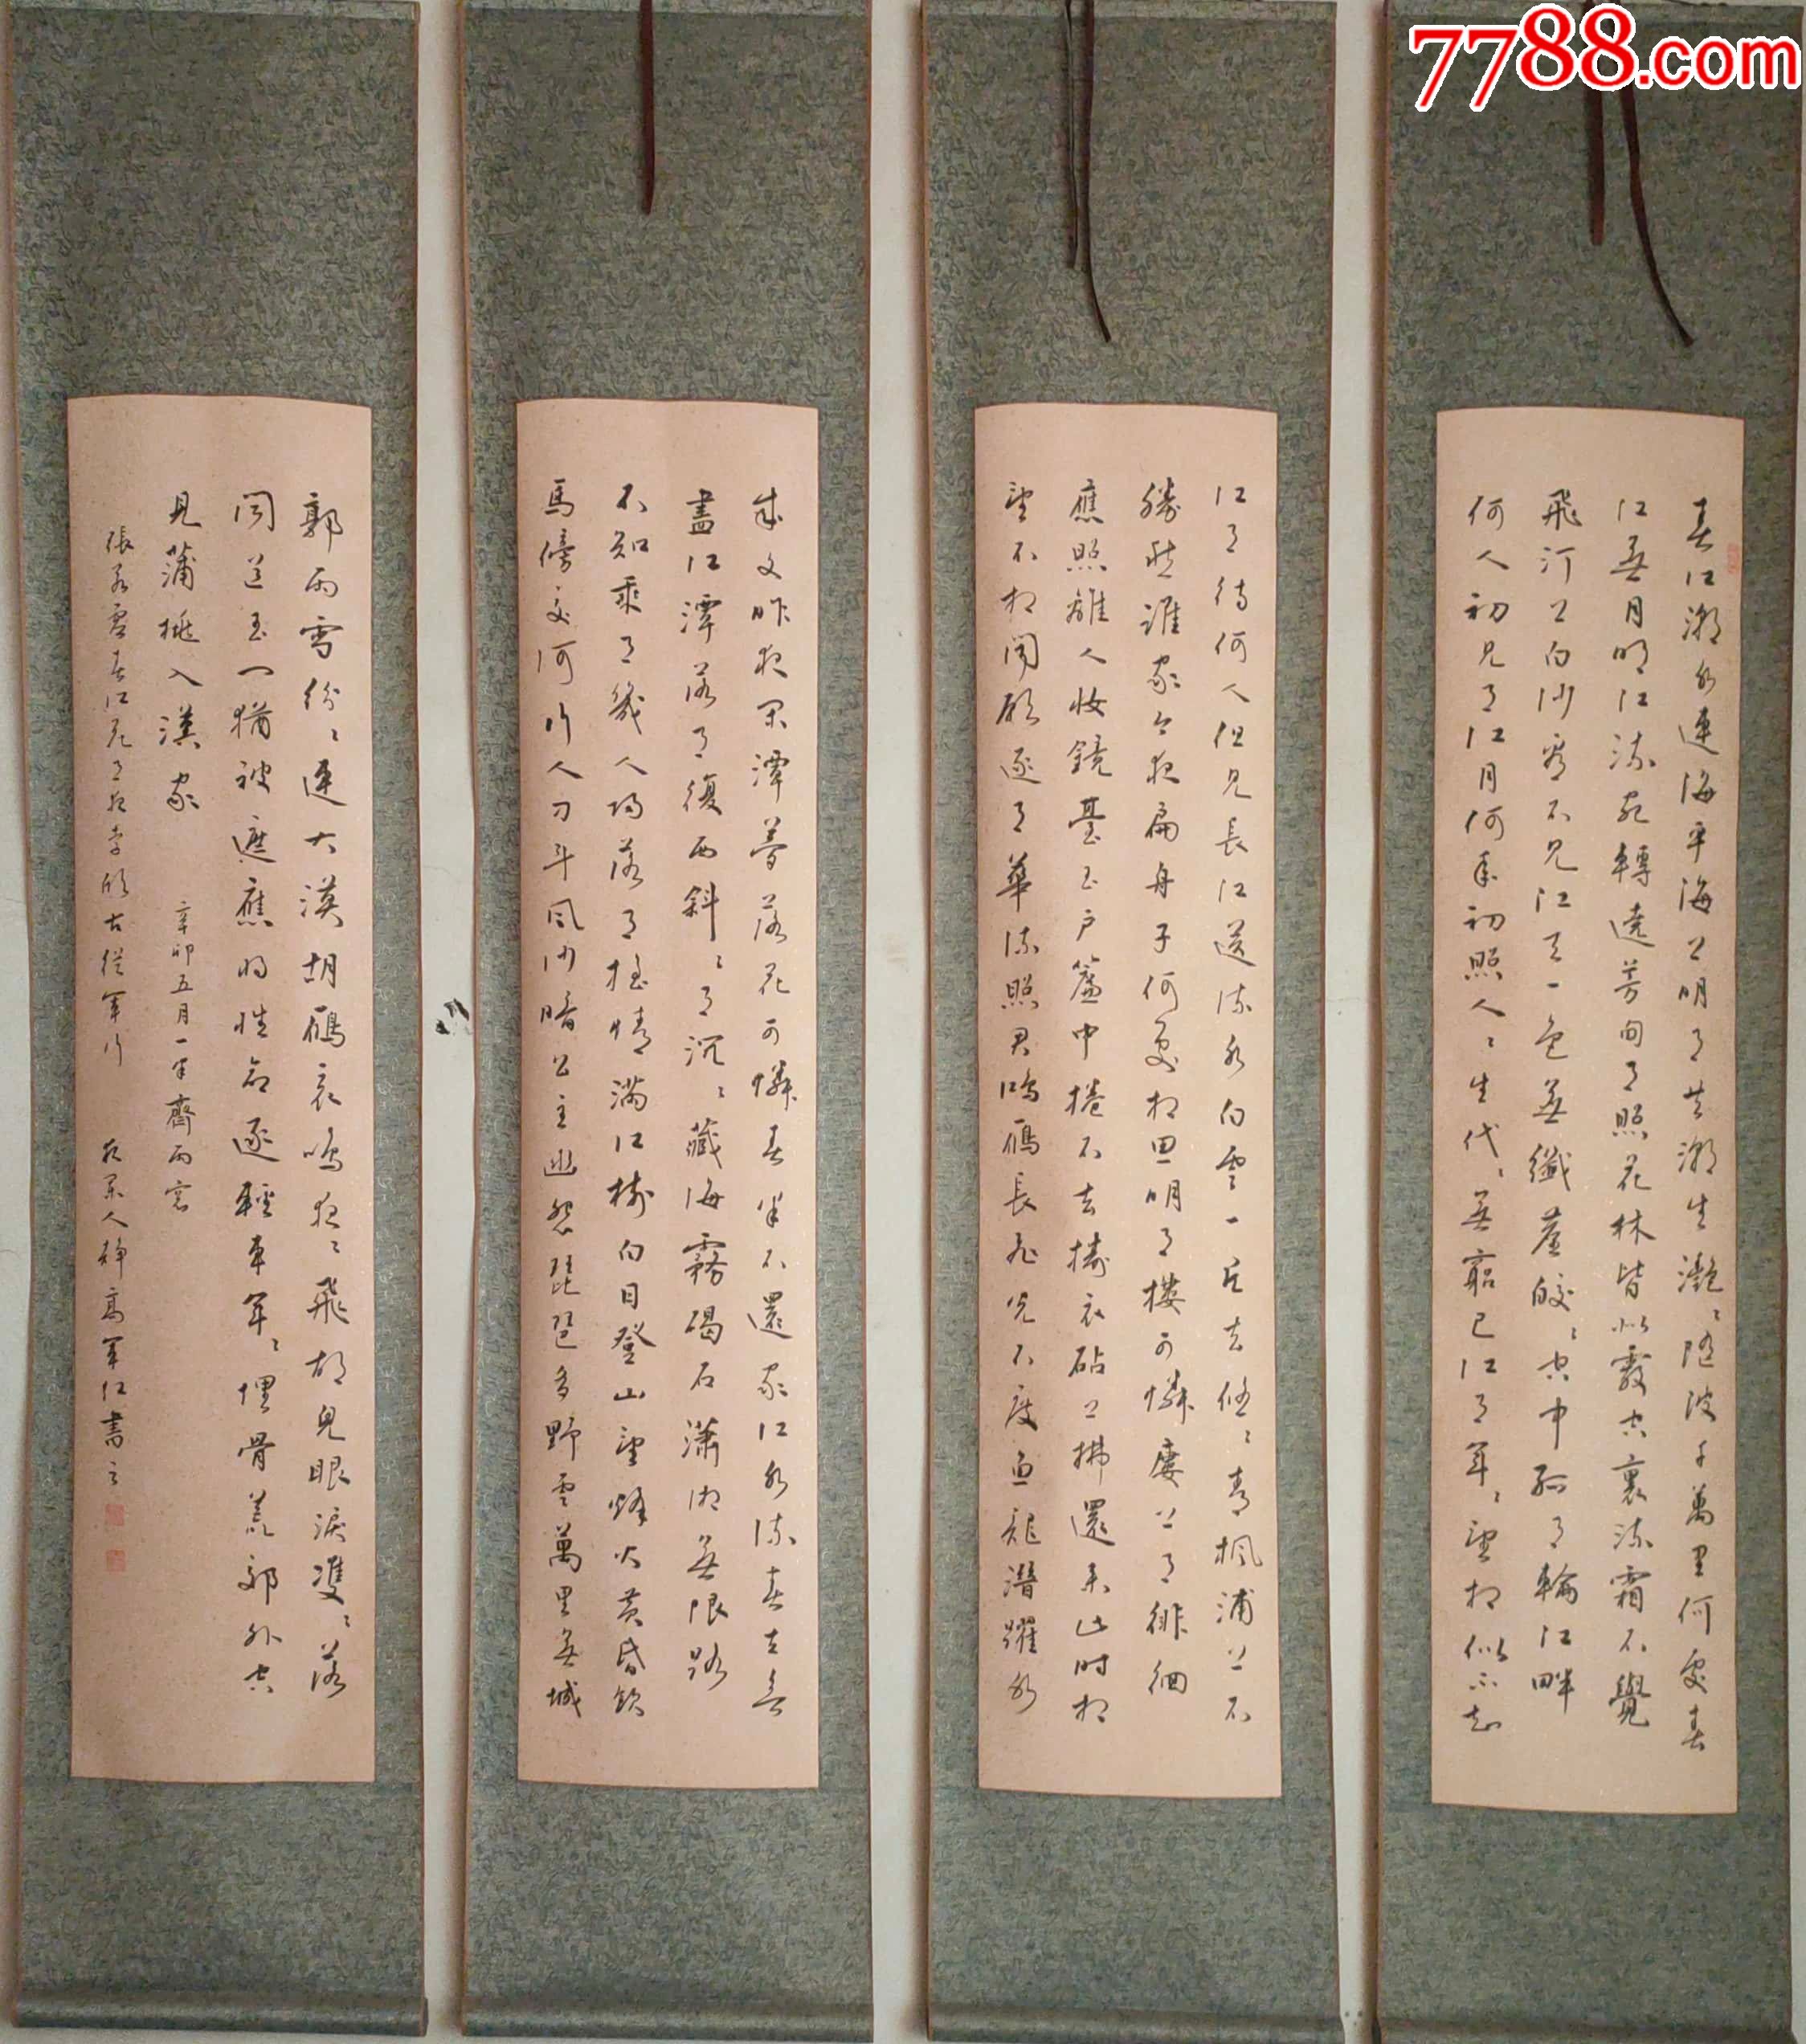 7788.com
春江潮水連海平海上明月共潮生灩〻隨波千萬里何處春
江無月明江流宛轉遶芳甸月照花林皆似霰空裏流霜不覺
飛汀上白沙看不見江天一色無纖塵皎〻空中孤月輪江畔
何人初見月江月何年初照人〻生代〻無窮已江月年〻望相似不知
江月待何人但見長江送流水白雲一片去悠〻青楓浦上不
勝愁誰家今夜扁舟子何處相思明月樓可憐樓上月徘徊
應照離人妝鏡臺玉戶簾中捲不去擣衣砧上拂還來此時相
望不相聞願逐月華流照君鴻雁長飛光不度魚龍潛躍水
成文昨夜閑潭夢落花可憐春半不還家江水流春去欲
盡江潭落月復西斜〻月沉〻藏海霧碣石瀟湘無限路
不知乘月幾人歸落月搖情滿江樹白日登山望烽火黃昏飲
馬傍交河行人刁斗風沙暗公主幽怨琵琶多野雲萬里無城
郭雨雪紛〻連大漠胡雁哀鳴夜〻飛胡兒眼淚雙〻落
聞道玉門猶被遮應將性命逐輕車年〻埋骨荒郊外空
見蒲桃入漢家 辛卯五月一半齋雨窗
張若虛春江花月夜李頎古從軍行 夜闌人靜高軍 書之